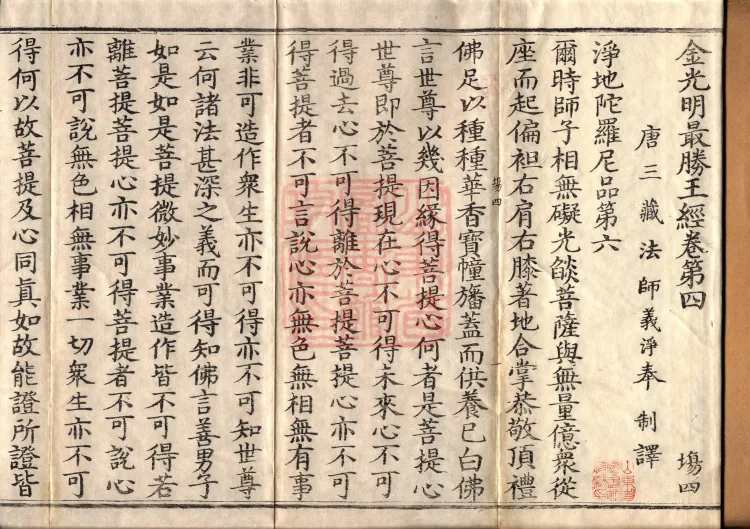 金光明最勝王經卷第四 塲四
唐三藏法師義淨奉制譯
淨地陀羅尼品第六
爾時師子相無礙光燄菩薩與無量億衆從
座而起偏袒右肩右膝著地合掌恭敬頂禮
佛足以種種華香寶幢旛蓋而供養已白佛
言世尊以幾因緣得菩提心何者是菩提心
世尊即於菩提現在心不可得未來心不可
得過去心不可得離於菩提菩提心亦不可
得菩提者不可言說心亦無色無相無有事
業非可造作衆生亦不可得亦不可知世尊
云何諸法甚深之義而可得知佛言善男子
如是如是菩提微妙事業造作皆不可得若
離菩提菩提心亦不可得菩提者不可說心
亦不可說無色相無事業一切衆生亦不可
得何以故菩提及心同眞如故能證所證皆
塲四